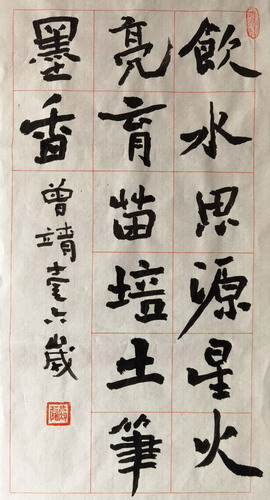 飲水思源星火
亮育苗培土筆
墨香
曾靖壹六歲